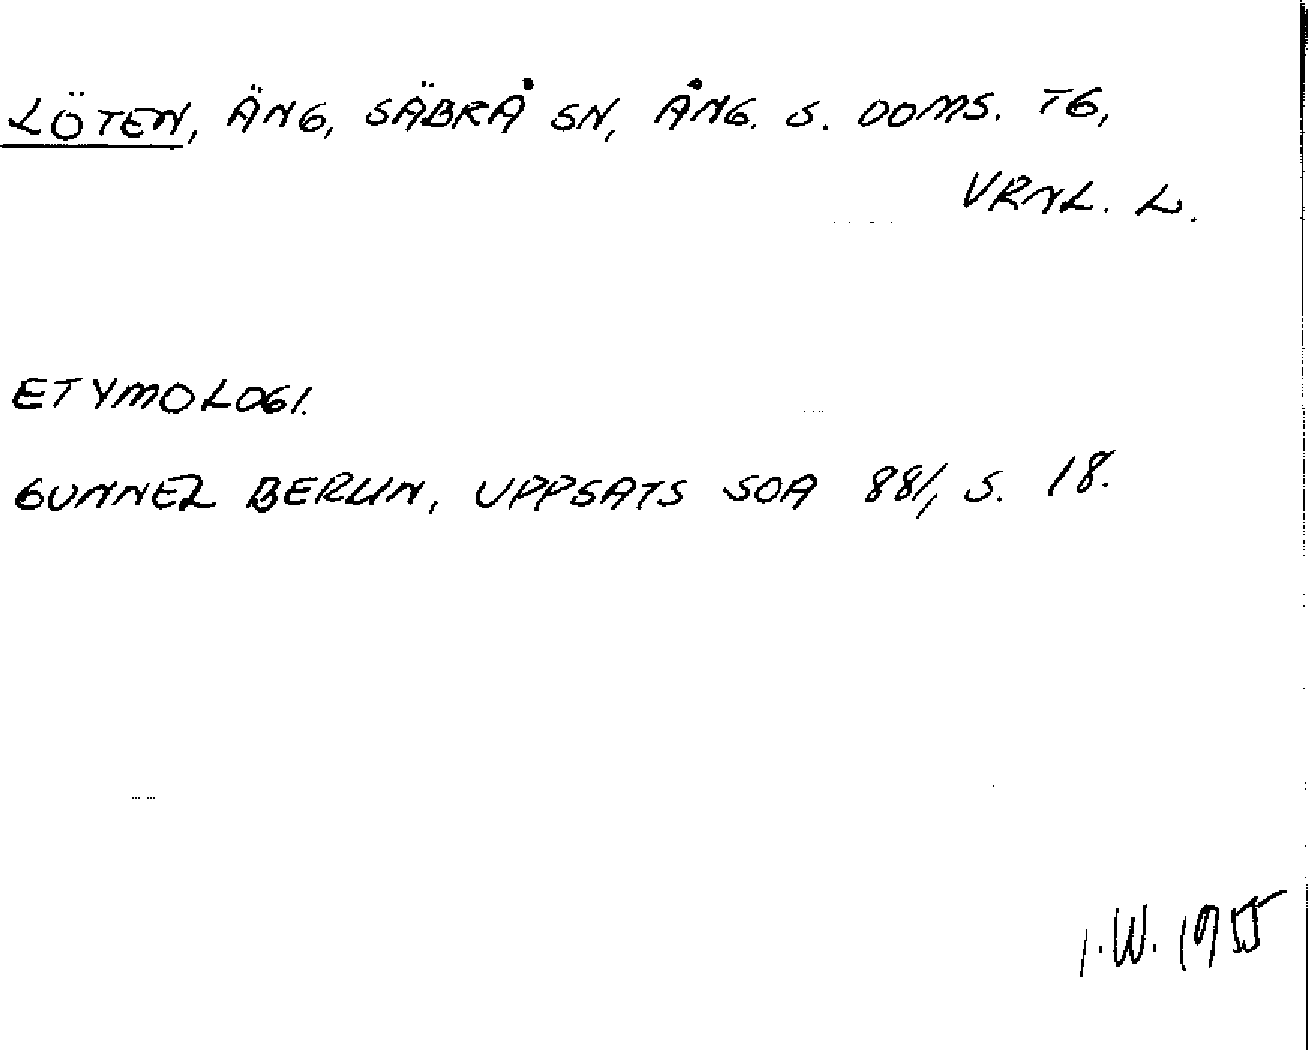 LÖTEN, ÄNG, SÄBRÅ SN, ÅNG. S. DOMS. TG,
VRNL. L.
ETYMOLOGI.
GUNNEL BERLIN, UPPSATS SOA 881, S. 18.
I.W. 1955